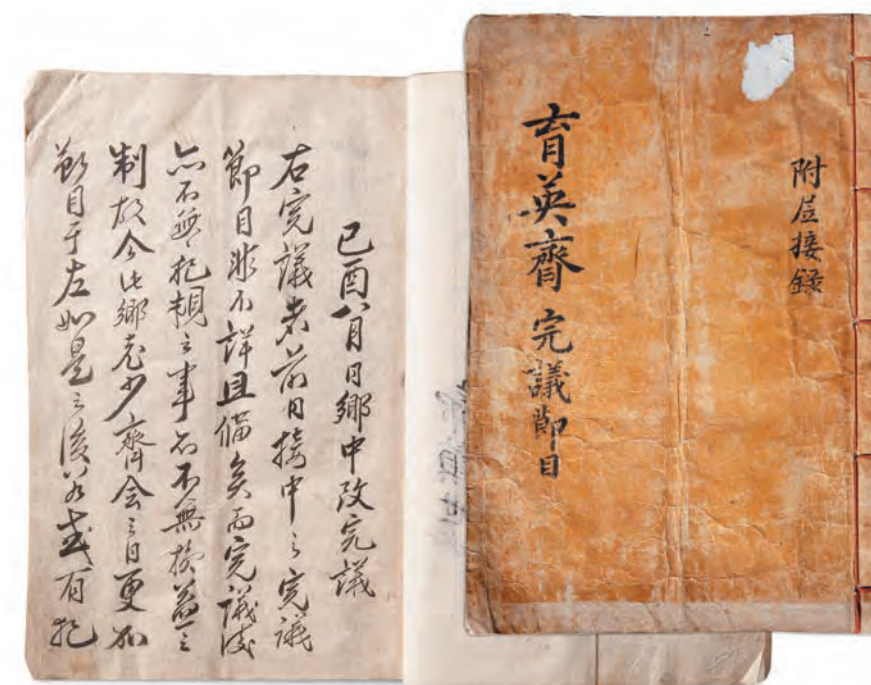 附居接錄
育英齋 完議節目
己酉八月日鄕中改完議
右完議者前日接中之完議
節目非不詳且備矣而完議後
亦不無犯規之事而不無損益之
制故今此鄕老少齊會之日更加
目于左如是之後若或有犯